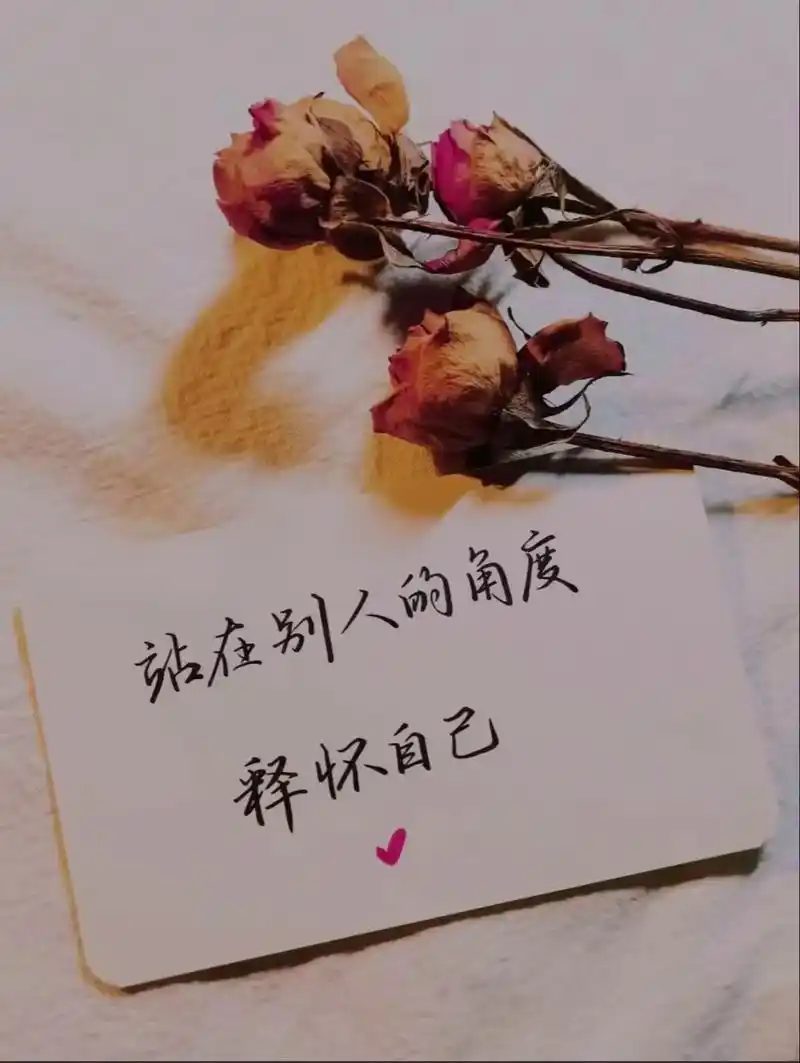 站在别人的角度
释怀自己